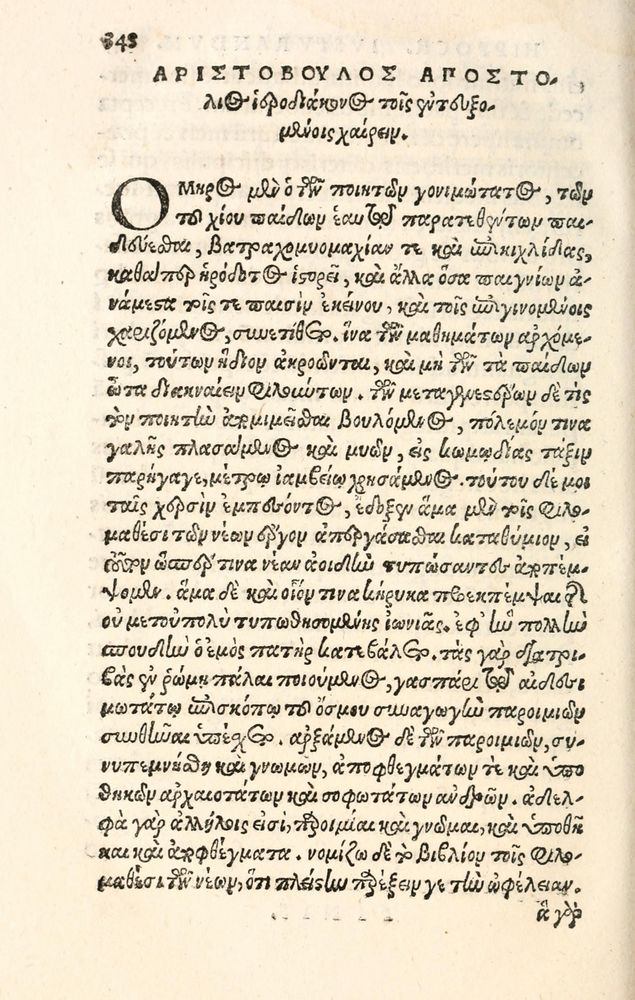 348
ΑΡΙΣΤΟΒΟΥΛΟΣ ΑΠΟΣΤΟ-
λιος ἱεροδιάκονος τοῖς ἐντευξο-
μένοις χαίρειν.
ΟΜηρος μὲν ὁ τῶν ποιητῶν γονιμώτατος, τῶν
τοῦ χίου παίδων ἑαυτῷ παρατεθέντων παι-
δεύεσθαι, βατραχομυομαχίαν τε καὶ ἐπικιχλίδας,
καθάπερ ἡρόδοτος ἱστορεῖ, καὶ ἄλλα ὅσα παιγνίων ἀ-
νάμεστα τοῖς τε παισὶν ἐκείνου, καὶ τοῖς ἐπιγινομένοις
χαριζόμενος, συνετίθετο. ἵνα τῶν μαθημάτων ἀρχόμε-
νοι, τούτων ἥδιον ἀκροῶνται, καὶ μὴ τῶν τὰ παίδων
ὦτα διακναίειν φιλούντων. τῶν μεταγενεστέρων δὲ τὶς
τὸν ποιητὴν ἀπομιμεῖσθαι βουλόμενος, πόλεμόν τινα
γαλῆς πλασάμενος καὶ μυῶν, εἰς κωμῳδίας τάξιν
παρήγαγε, μέτρῳ ἰαμβείῳ χρησάμενος. τούτου δέ μοι
ταῖς χερσὶν ἐμπεσόντος, ἔδοξεν ἅμα μὲν τοῖς φιλο-
μαθέσι τῶν νέων ἔργον ἀπεργάσασθαι καταθύμιον, εἰ
ὥσπερ τινα νέαν ἀοιδὴν τυπώσαντες ἀποπέμ-
ψομεν. ἅμα δὲ καὶ οἷόν τινα κήρυκα προεκπέμψαι τῆς
οὐ μετοὐπολὺ τυπωθησομένης ἰωνιᾶς. ἐφ' ἣν πολλὴν
σπουδὴν ὁ ἐμὸς πατὴρ κατεβάλετο. τὰς γὰρ διατρι-
βὰς ἐν ῥώμῃ πάλαι ποιούμενος, γασπάρῳ τῷ αἰδεσι
μωτάτῳ ἐπισκόπῳ τοῦ ὄσμου συναγωγὴν παροιμιῶν
συνθεῖναι ὑπέσχετο. ἀρξάμενος δὲ τῶν παροιμιῶν, συ-
νυπεμνήσθη καὶ γνωμῶν, ἀποφθεγμάτων τὲ καὶ ὑπο
θηκῶν ἀρχαιοτάτων καὶ σοφωτάτων ἀνδρῶν. ἀδελ-
φὰ γὰρ ἀλλήλοις εἰσὶ, παροιμίαι καὶ γνῶμαι, καὶ ὑποθῆ
και καὶ ἀποφθέγματα. νομίζω δὲ τὸ βιβλίον τοῖς φιλο-
μαθέσι τῶν νέων, ὅτι πλείστην παρέξειν γε τὴν ὠφέλειαν.
ἃ γὰρ